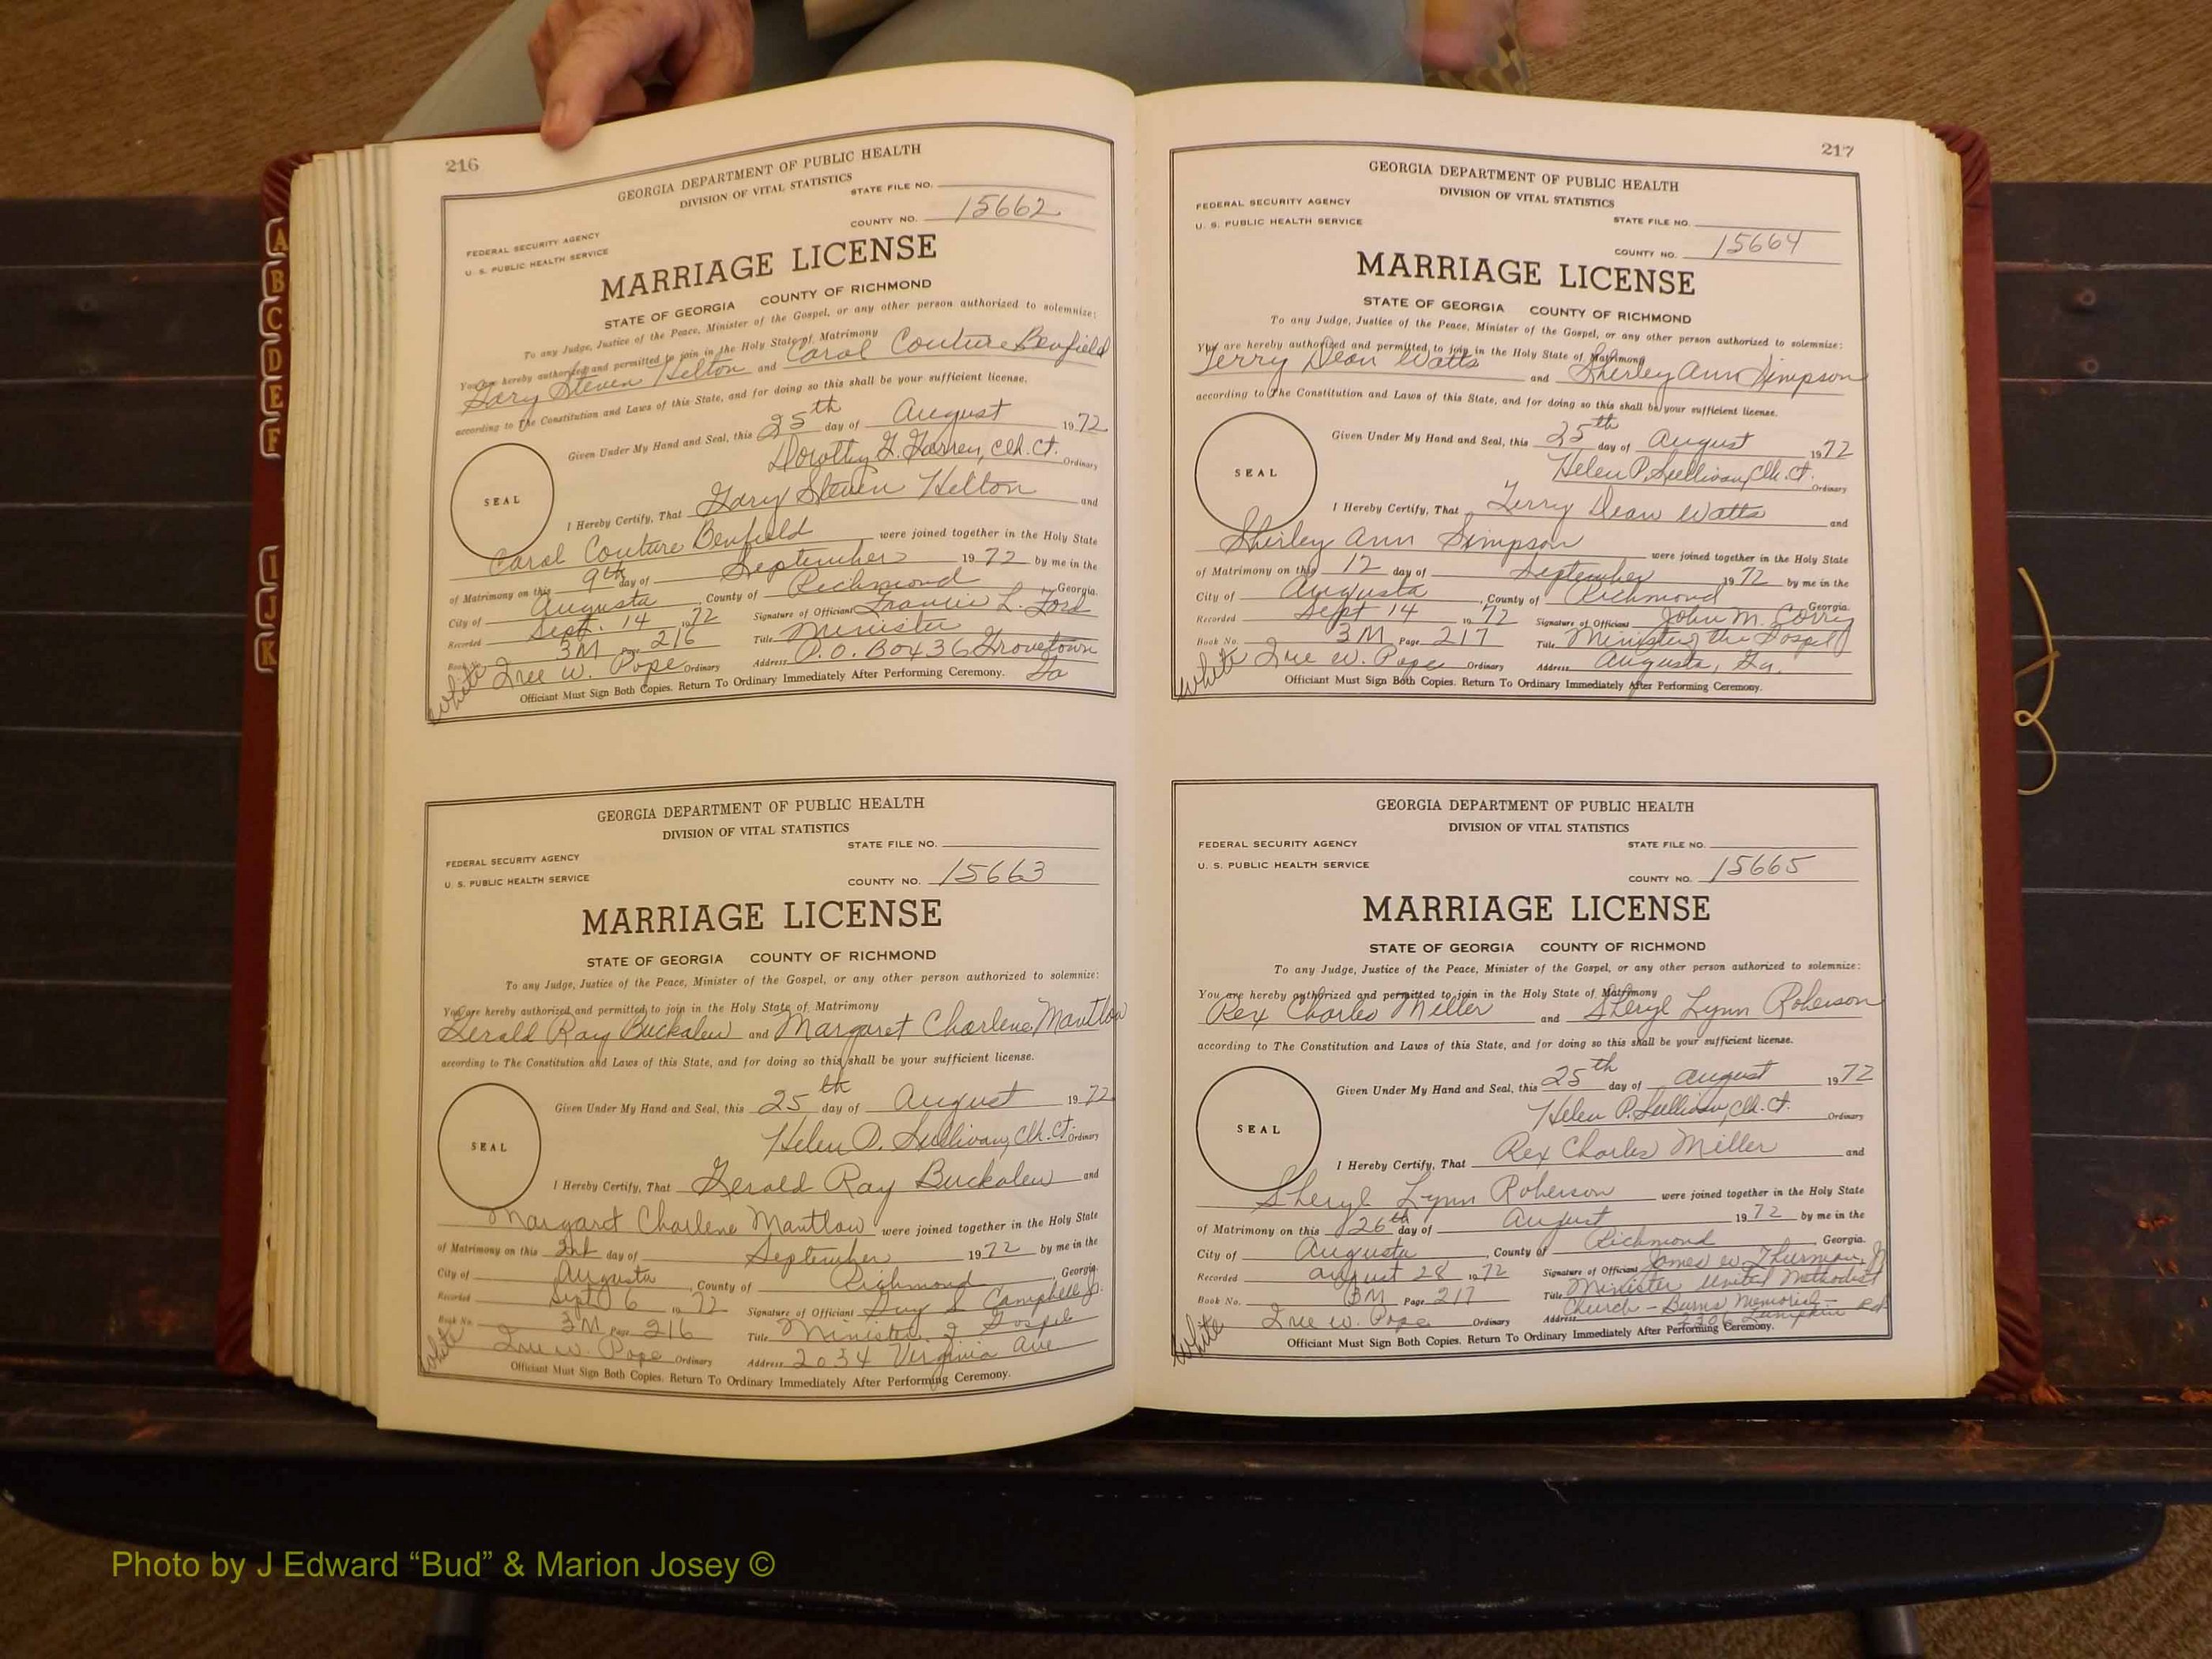 A
B
C
D
E
F
I
J
K
216
GEORGIA DEPARTMENT OF PUBLIC HEALTH
DIVISION OF VITAL STATISTICS
STATE FILE NO.
COUNTY NO. 15662
FEDERAL SECURITY AGENCY
U. S. PUBLIC HEALTH SERVICE
MARRIAGE LICENSE
STATE OF GEORGIA COUNTY OF RICHMOND
To any Judge, Justice of the Peace, Minister of the Gospel, or any other person authorized to solemnize:
You are hereby authorized and permitted to join in the Holy State of Matrimony
Gary Steven Helton and Carol Couture Benfield
according to The Constitution and Laws of this State, and for doing so this shall be your sufficient license.
Given Under My Hand and Seal, this 25th day of August 1972
Dorothy G. Clk. Ct. Ordinary
SEAL
I Hereby Certify, That Gary Steven Helton and
Carol Couture Benfield were joined together in the Holy State
of Matrimony on this 9th day of September 1972 by me in the
City of Augusta, County of Richmond Georgia.
Recorded Sept. 14 1972 Signature of Officiant Francis L. Ford
Book No. 3M Page 216 Title Minister
White W. Pope Ordinary Address P.O. Box 36 Grovetown Ga
Officiant Must Sign Both Copies. Return To Ordinary Immediately After Performing Ceremony.
GEORGIA DEPARTMENT OF PUBLIC HEALTH
DIVISION OF VITAL STATISTICS
STATE FILE NO.
FEDERAL SECURITY AGENCY
U. S. PUBLIC HEALTH SERVICE
COUNTY NO. 15663
MARRIAGE LICENSE
STATE OF GEORGIA COUNTY OF RICHMOND
To any Judge, Justice of the Peace, Minister of the Gospel, or any other person authorized to solemnize:
You are hereby authorized and permitted to join in the Holy State of Matrimony
Gerald Ray Buckalew and Margaret Charlene Mantlow
according to The Constitution and Laws of this State, and for doing so this shall be your sufficient license.
Given Under My Hand and Seal, this 25th day of August 1972
Helen P. Sullivan, Clk. Ct. Ordinary
SEAL
I Hereby Certify, That Gerald Ray Buckalew and
Margaret Charlene Mantlow were joined together in the Holy State
of Matrimony on this 2nd day of September 1972 by me in the
City of Augusta, County of Richmond, Georgia.
Recorded Sept 6 1972 Signature of Officiant Guy S Campbell Jr.
Book No. 3M Page 216 Title Minister of Gospel
White W. Pope Ordinary Address 2034 Virginia Ave
Officiant Must Sign Both Copies. Return To Ordinary Immediately After Performing Ceremony.
217
GEORGIA DEPARTMENT OF PUBLIC HEALTH
DIVISION OF VITAL STATISTICS
FEDERAL SECURITY AGENCY
U. S. PUBLIC HEALTH SERVICE
STATE FILE NO.
COUNTY NO. 15664
MARRIAGE LICENSE
STATE OF GEORGIA COUNTY OF RICHMOND
To any Judge, Justice of the Peace, Minister of the Gospel, or any other person authorized to solemnize:
You are hereby authorized and permitted to join in the Holy State of Matrimony
Terry Dean Watts and Shirley Ann Simpson
according to The Constitution and Laws of this State, and for doing so this shall be your sufficient license.
Given Under My Hand and Seal, this 25th day of August 1972
Helen P. Sullivan, Clk. Ct. Ordinary
SEAL
I Hereby Certify, That Terry Dean Watts and
Shirley Ann Simpson were joined together in the Holy State
of Matrimony on this 12 day of September 1972 by me in the
City of Augusta, County of Richmond Georgia.
Recorded Sept 14 1972 Signature of Officiant John M.
Book No. 3M Page 217 Title Minister of the Gospel
White W. Pope Ordinary Address Augusta, Ga.
Officiant Must Sign Both Copies. Return To Ordinary Immediately After Performing Ceremony.
GEORGIA DEPARTMENT OF PUBLIC HEALTH
DIVISION OF VITAL STATISTICS
FEDERAL SECURITY AGENCY
U. S. PUBLIC HEALTH SERVICE
STATE FILE NO.
COUNTY NO. 15665
MARRIAGE LICENSE
STATE OF GEORGIA COUNTY OF RICHMOND
To any Judge, Justice of the Peace, Minister of the Gospel, or any other person authorized to solemnize:
You are hereby authorized and permitted to join in the Holy State of Matrimony
Rex Charles Miller and Sheryl Lynn Roberson
according to The Constitution and Laws of this State, and for doing so this shall be your sufficient license.
Given Under My Hand and Seal, this 25th day of August 1972
Helen P. Sullivan, Clk. Ct. Ordinary
SEAL
I Hereby Certify, That Rex Charles Miller and
Sheryl Lynn Roberson were joined together in the Holy State
of Matrimony on this 26th day of August 1972 by me in the
City of Augusta, County of Richmond, Georgia.
Recorded August 28 1972 Signature of Officiant James W Thurman, Jr
Book No. 3M Page 217 Title Minister United Methodist
Church - Burns Memorial -
White W. Pope Ordinary Address Lumpkin Rd.
Officiant Must Sign Both Copies. Return To Ordinary Immediately After Performing Ceremony.
Photo by J Edward “Bud” & Marion Josey ©